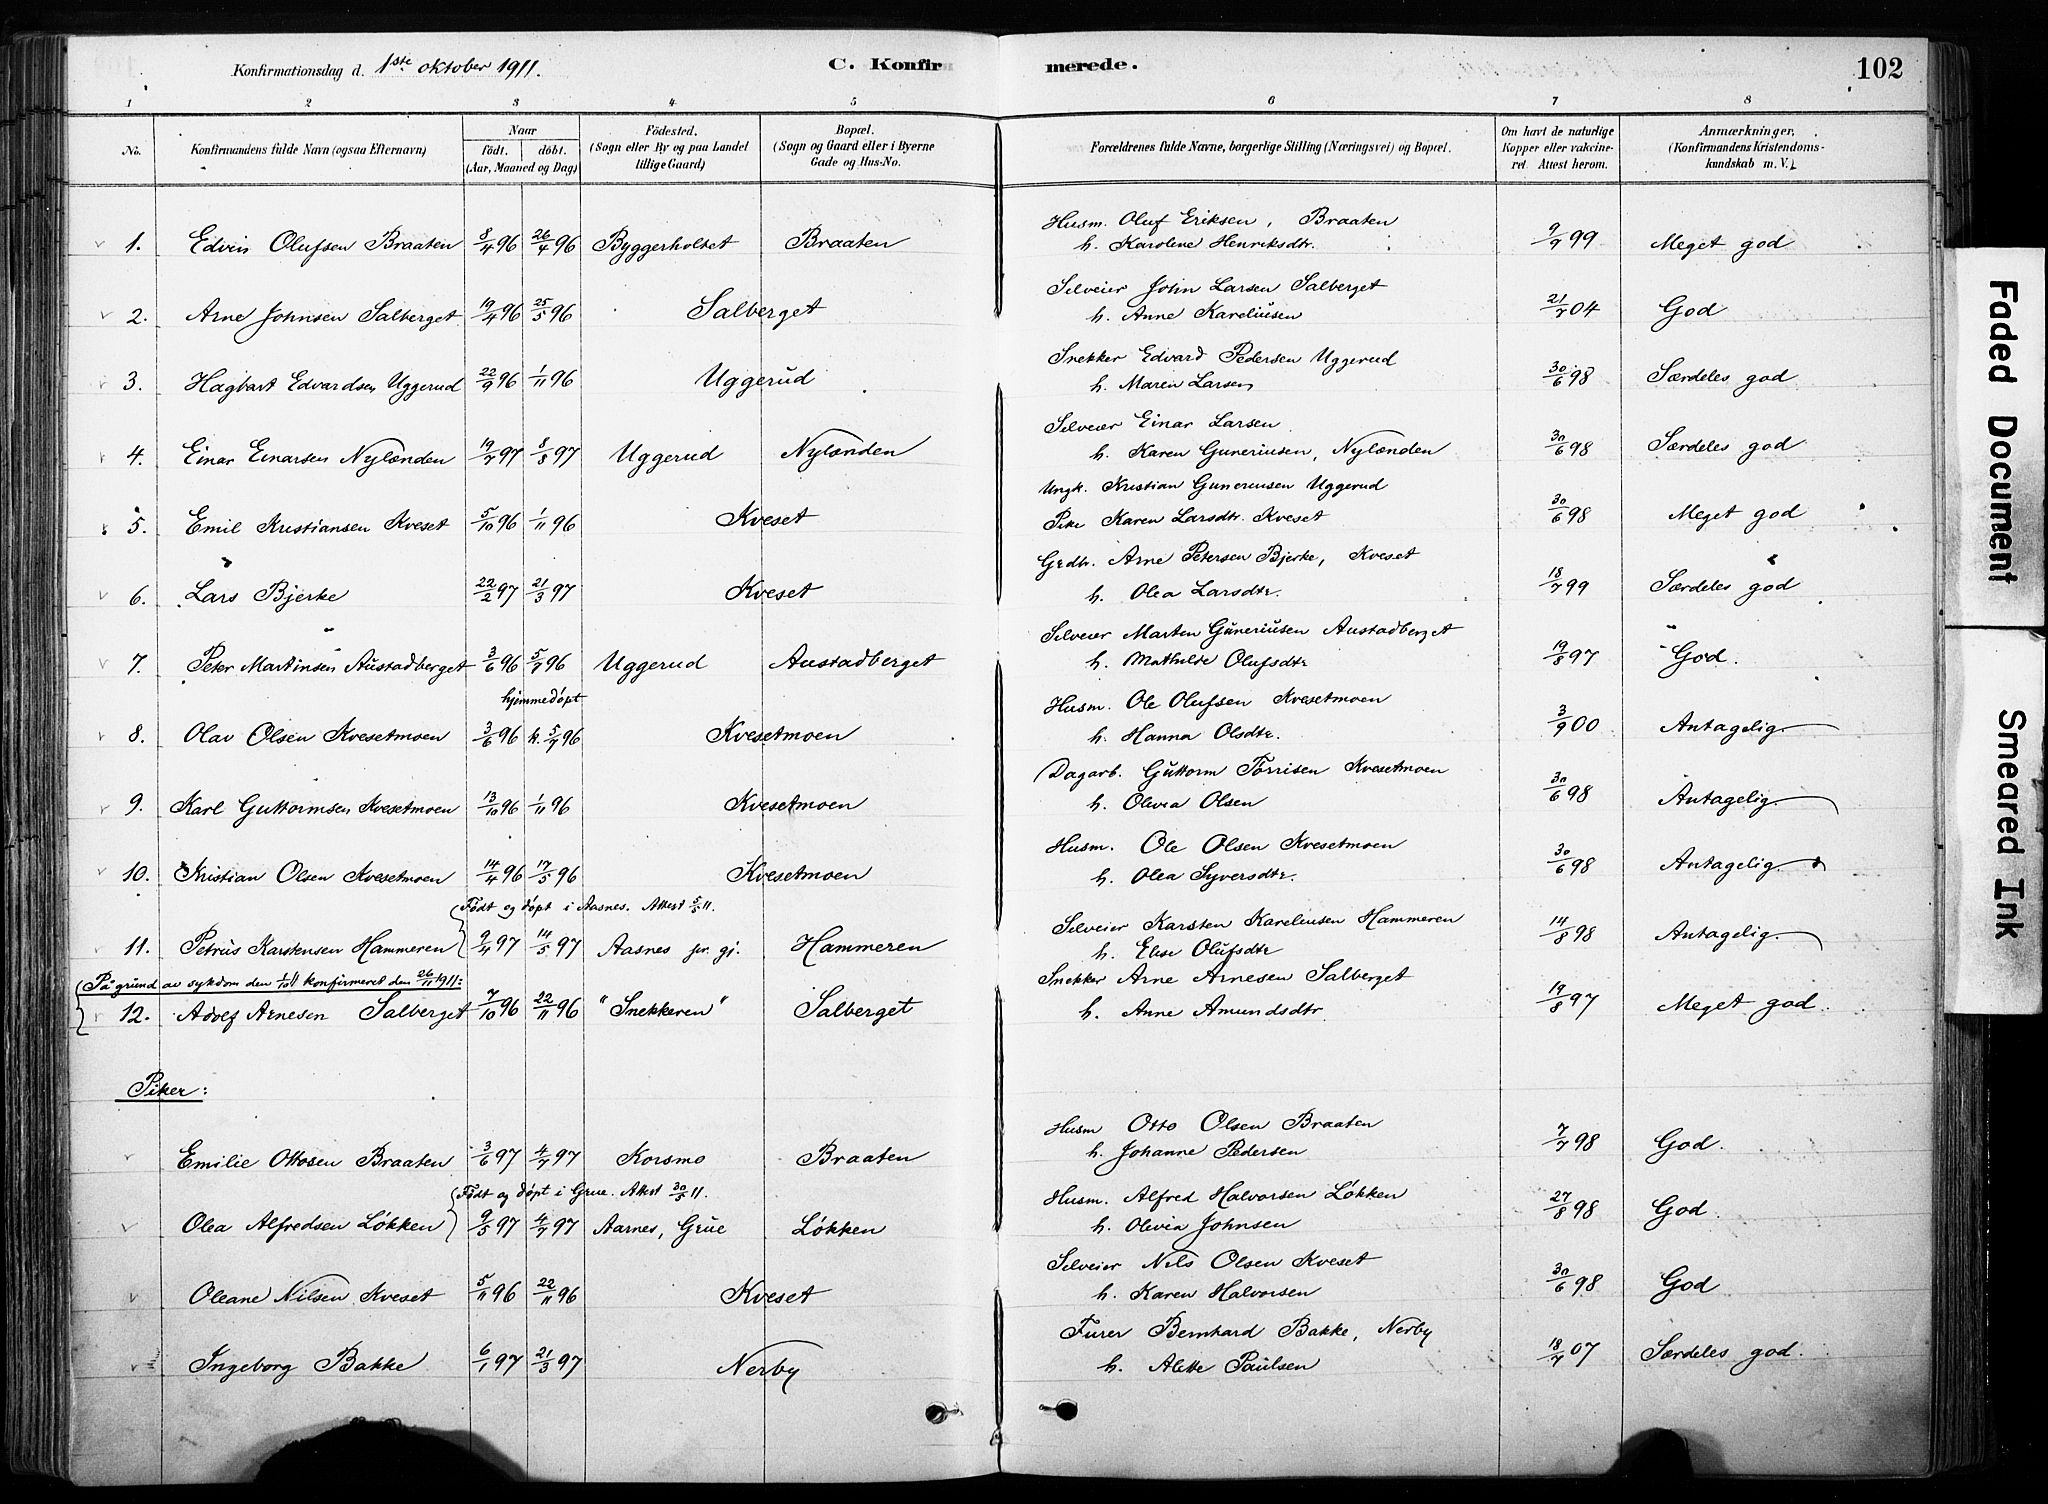 Konfirmationsdag d. 1ste oktober 1911.
C. Konfirmerede.
102
1 2 3 4 5 6 7 8
No.
Konfirmandens fulde Navn (ogsaa Efternavn)
Naar
födt. döbt.
(Aar, Maaned og Dag)
Födested.
(Sogn eller By og paa Landet
tillige Gaard)
Bopæl.
(Sogn og Gaard eller i Byerne
Gade og Hus-No.
Forældrenes fulde Navne, borgerlige Stilling (Næringsvei) og Bopæl.
Om havt de naturlige
Kopper eller vakcine-
ret. Attest herom.
Anmærkninger,
(Konfirmandens Kristendoms-
kundskab m. V.)
Husm. Oluf Eriksen, Braaten
1. Edvin Olufsen Braaten 8/4 96 26/4 96 Byggerholtet Braaten h. Karolene Henriksdtr. 9/7 99 Meget god
Selveier John Larsen Salberget
2. Arne Johnsen Salberget 19/4 96 25/5 96 Salberget h. Anne Kareliusen 21/7 04 God
Snekker Edvard Pedersen Uggerud
3. Hagbart Edvardsen Uggerud 22/9 96 1/11 96 Uggerud h. Maren Larsen 30/6 98 Særdeles god
Selveier Einar Larsen
4. Einar Einarsen Nylænden 19/7 97 8/8 97 Uggerud Nylænden h. Karen Guneriusen, Nylænden 30/6 98 Særdeles god
Ungk. Kristian Guneriusen Uggerud
5. Emil Kristiansen Kveset 5/10 96 1/11 96 Kveset Pike Karen Larsdtr. Kveset 30/6 98 Meget god
Grdbr. Arne Petersen Bjerke, Kveset
6. Lars Bjerke 22/2 97 21/3 97 Kveset h. Olea Larsdtr. 18/7 99 Særdeles god
Selveier Marten Guneriusen Austadberget
7. Peter Martinsen Austadberget 3/6 96 5/7 96 Uggerud Austadberget h. Mathilde Olufsdtr 19/8 97 God.
hjemmedöpt
Husm. Ole Olufsen Kvesetmoen
8. Olav Olsen Kvesetmoen 3/6 96 k. 5/7 96 Kvesetmoen h. Hanna Olsdtr. 3/9 00 Antagelig
Dagarb. Guttorm Torrisen Kvesetmoen
9. Karl Guttormsen Kvesetmoen 13/10 96 1/11 96 Kvesetmoen h. Olivia Olsen 30/6 98 Antagelig
Husm. Ole Olsen Kvesetmoen
10. Kristian Olsen Kvesetmoen 14/4 96 17/5 96 Kvesetmoen h. Olea Syversdtr. 30/6 98 Antagelig
Födt og döpt i Aasnes. Attest 5/5 11.
Selveier Karsten Kareliusen Hammeren
11. Petrus Karstensen Hammeren 9/4 97 14/5 97 Aasnes pr. gj. Hammeren h. Elise Olufsdtr 14/8 98 Antagelig
På grund av sykdom den 1/10 11 konfirmeret den 26/11 1911:
Snekker Arne Arnesen Salberget
12. Adolf Arnesen Salberget 7/10 96 22/11 96 "Snekkeren" Salberget h. Anne Amundsdtr 19/8 97 Meget god.
Piker:
Husm Otto Olsen Braaten
Emilie Ottosen Braaten 3/6 97 4/7 97 Korsmo Braaten h. Johanne Pedersen 7/7 98 God.
Födt og döpt i Grue. Attest 30/5 11.
Husm. Alfred Halvorsen Løkken
Olea Alfredsen Løkken 9/5 97 4/7 97 Aarnes, Grue Løkken h. Olivia Johnsen 27/8 98 God.
Selveier Nils Olsen Kveset
Oleane Nilsen Kveset 5/11 96 22/11 96 Kveset h. Karen Halvorsen 30/6 98 God
Furer Bernhard Bakke, Nerby
Ingeborg Bakke 6/1 97 21/3 97 Nerby h. Alette Paulsen 18/7 07 Særdeles god.
Faded Document
Smeared Ink